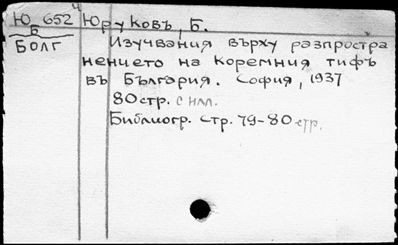 Ю 652 Ч
Б
БОЛГ
Юруковъ, Б.
Изучвания върху разпростра
нението на коремния тифъ
въ България. София, 1937
80 стр. с илл.
Библиогр. стр. 79-80 стр.